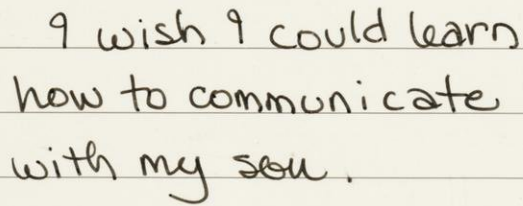 I wish I could learn
how to communicate
with my son.